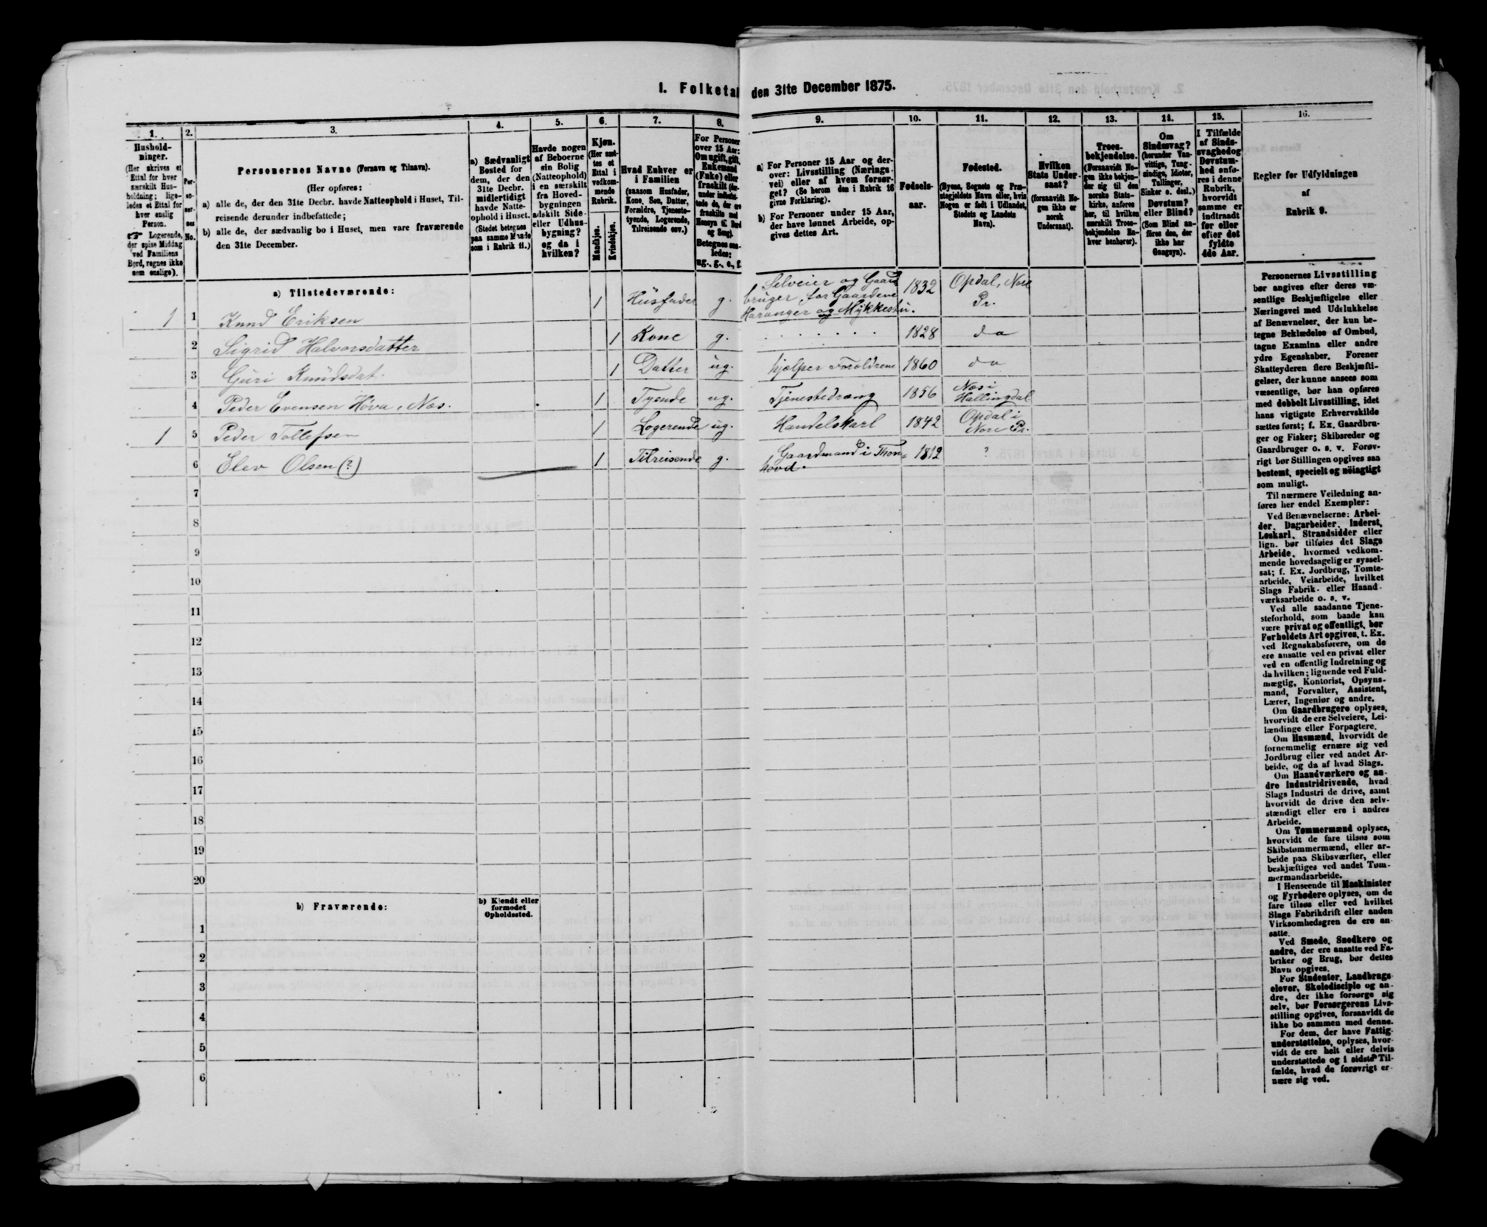 1. Folketal den 31te December 1875.
1.
2.
3.
4.
5.
6.
7.
8.
9.
10.
11.
12.
13.
14.
15.
16.
Hushold-
ninger.
(Her skrives et
Ettal for hver
særskilt Hus-
holdning; lige-
ledes et Ettal for
hver enslig
Person.
☞ Logerende,
der spise Middag
ved Familiens
Bord, regnes ikke
som enslige).
Per-
soner-
nes
No.
Personernes Navne (Fornavn og Tilnavn).
(Her opføres:
a) alle de, der den 31te Decbr. havde Natteophold i Huset, Til-
reisende derunder indbefattede;
b) alle de, der sædvanlig bo i Huset, men vare fraværende
den 31te December.
a) Sædvanligt
Bosted for
dem, der den
31te Decbr.
midlertidigt
havde Natte-
ophold i Huset.
(Stedet betegnes
paa samme Maade
som i Rubrik 11.)
Havde nogen
af Beboerne
sin Bolig
(Natteophold)
i en særskilt
fra Hoved-
bygningen
adskilt Side-
eller Udhus-
bygning?
og da i
hvilken?
Kjøn.
(Her sæt-
tes et
Ettal i
vedkom-
mende
Rubrik.
Mandkjøn.
Kvindekjøn.
Hvad Enhver er
i Familien
(saasom Husfader,
Kone, Søn, Datter,
Forældre, Tjeneste-
tyende, Logerende,
Tilreisende osv.)
For Personer
over 15 Aar:
Om ugift, gift,
Enkemand
(Enke) eller
fraskilt
Betegnes saa-
ledes:
ug., g., e., f.
a) For Personer 15 Aar og der-
over: Livsstilling (Nærings-
vei) eller af hvem forsør-
get? (Se herom den i Rubrik 16
givne Forklaring).
b) For Personer under 15 Aar,
der have lønnet Arbeide, op-
gives dettes Art.
Fødsels-
aar.
Fødested.
(Byens, Sognets og Præ-
stegjeldets Navn eller, hvis
Nogen er født i Udlandet,
Stedets og Landets
Navn).
Hvilken
Stats Under-
saat?
(forsaavidt No-
gen ikke er
norsk
Undersaat).
Troes-
bekjendelse.
(Forsaavidt No-
gen ikke bekjen-
der sig til den
norske Stats-
kirke, anføres
her, til hvilken
særskilt Troes-
bekjendelse He
hver henhører).
Om
Sindssvag?
(herunder Van-
vittige, Tung-
sindige, Idioter,
Tullinger,
Sinker o. desl.)
Døvstum?
eller Blind?
(Som Blind an-
føres den, der
ikke har
Gangsyn).
I Tilfælde
af Sinds-
svaghed og
Døvstum-
hed anfø-
res i denne
Rubrik,
hvorvidt
samme er
indtraadt
før eller
efter det
fyldte
4de Aar.
Regler for Udfyldningen
af
Rubrik 9.
a) Tilstedeværende:
1 1 Knud Eriksen 1 Husfader g. Selveier og Gaard
bruger, for Gaardene
Haranger og Mykkestu. 1832 Opdal, Nore
Pr.
2 Sigrid Halvorsdatter 1 Kone g. . . . . . . 1828 do
3 Guri Knudsdat. 1 Datter ug. hjælper Forældrene 1860 do
4 Peder Evensen Hva, Næs. 1 Tyende ug. Tjenestedreng 1856 Næs i
Hallingdal
1 5 Peder Tollefsen 1 Logerende ug. Handelskarl 1842 Opdal i
Nore Pr.
6 Elev Olsen (?) 1 Tilreisende g. Gaardmand i 1812 ?
7
8
9
10
11
12
13
14
15
16
17
18
19
20
b) Fraværende:
b) Kjendt eller
formodet
Opholdssted.
1
2
3
4
5
6
Personernes Livsstilling
bør angives efter deres væ-
sentlige Beskjæftigelse eller
Næringsvei med Udelukkelse
af Benævnelser, der kun be-
tegne Beklædelse af Ombud,
tagne Examina eller andre
ydre Egenskaber. Forener
Skatteyderen flere Beskjæfti-
gelser, der kunne ansees som
væsentlige, bør han opføres
med dobbelt Livsstilling, idet
hans vigtigste Erhvervskilde
sættes først; f. Ex. Gaardbru-
ger og Fisker; Skibsreder og
Gaardbruger o. s. v. Forøv-
rigt bør Stillingen opgives saa
bestemt, specielt og nøiagtigt
som muligt.
Til nærmere Veiledning an-
føres her endel Exempler:
Ved Benævnelserne: Arbei-
der, Dagarbeider, Inderst,
Løskarl, Strandsidder eller
lign. bør tilføies det Slags
Arbeide, hvormed vedkom-
mende hovedsagelig er syssel-
sat; f. Ex. Jordbrug, Tomte-
arbeide, Veiarbeide, hvilket
Slags Fabrik- eller Haand-
værksarbeide o. s. v.
Ved alle saadanne Tjene-
steforhold, som baade kan
være privat og offentligt, bør
Forholdets Art opgives, t. Ex.
ved Regnskabsførere, om de
ere ansatte ved en privat eller
ved en offentlig Indretning og
da hvilken; lignende ved Fuld-
mægtig, Kontorist, Opsyns-
mand, Forvalter, Assistent,
Lærer, Ingeniør og andre.
Om Gaardbrugere oplyses,
hvorvidt de ere Selveiere, Lei-
lændinge eller Forpagtere.
Om Husmænd, hvorvidt de
fornemmelig ernære sig ved
Jordbrug eller ved andet Ar-
beide, og da af hvad Slags.
Om Haandværkere og an-
dre Industridrivende, hvad
Slags Industri de drive, samt
hvorvidt de drive den selv-
stændigt eller ere i andres
Arbeide.
Om Tømmermænd oplyses,
hvorvidt de fare tilsøs som
Skibstømmermænd, eller ar-
beide paa Skibsværfter, eller
beskjæftiges ved andet Tøm-
mermandsarbeide.
I Henseende til Maskinister
og Fyrbødere oplyses, om de
fare tilsøs eller ved hvilket
Slags Fabrikdrift eller anden
Virksomhedsgren de ere an-
satte.
Ved Smede, Snedkere og
andre, der ere ansatte ved Fa-
briker og Brug, bør dettes
Navn opgives.
For Studenter, Landbrugs-
elever, Skoledisciple og an-
dre, der ikke forsørge sig
selv, bør Forsørgerens Livs-
stilling opgives, forsaavidt de
ikke bo sammen med denne.
For dem, der have Fattig-
understøttelse, oplyses, hvor-
vidt de ere helt eller delvis
understøttede og i sidste Til-
fælde, hvad de forøvrigt er-
nære sig ved.